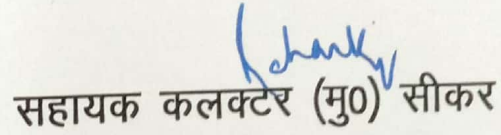 सहायक कलक्टर (मु0) सीकर